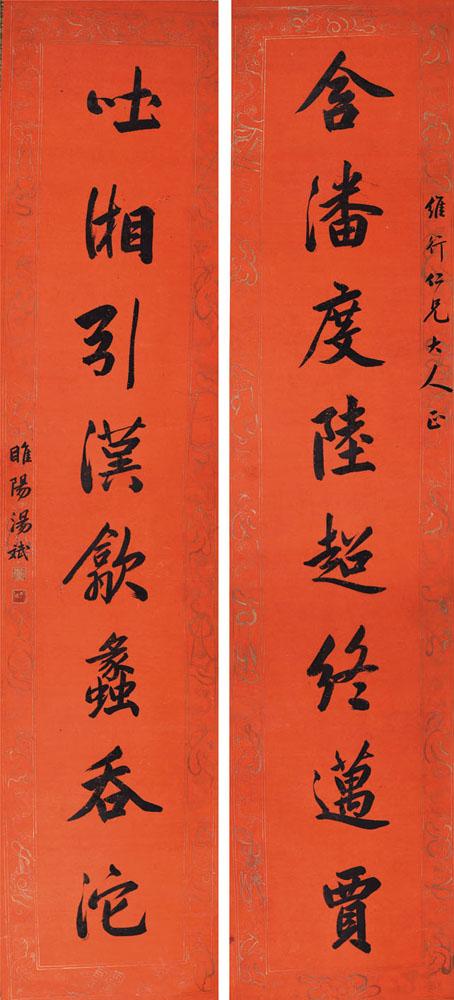 維行仁兄大人正
含潘度陸超終邁賈
吐湘引漢歙蠡吞沱
睢陽湯斌